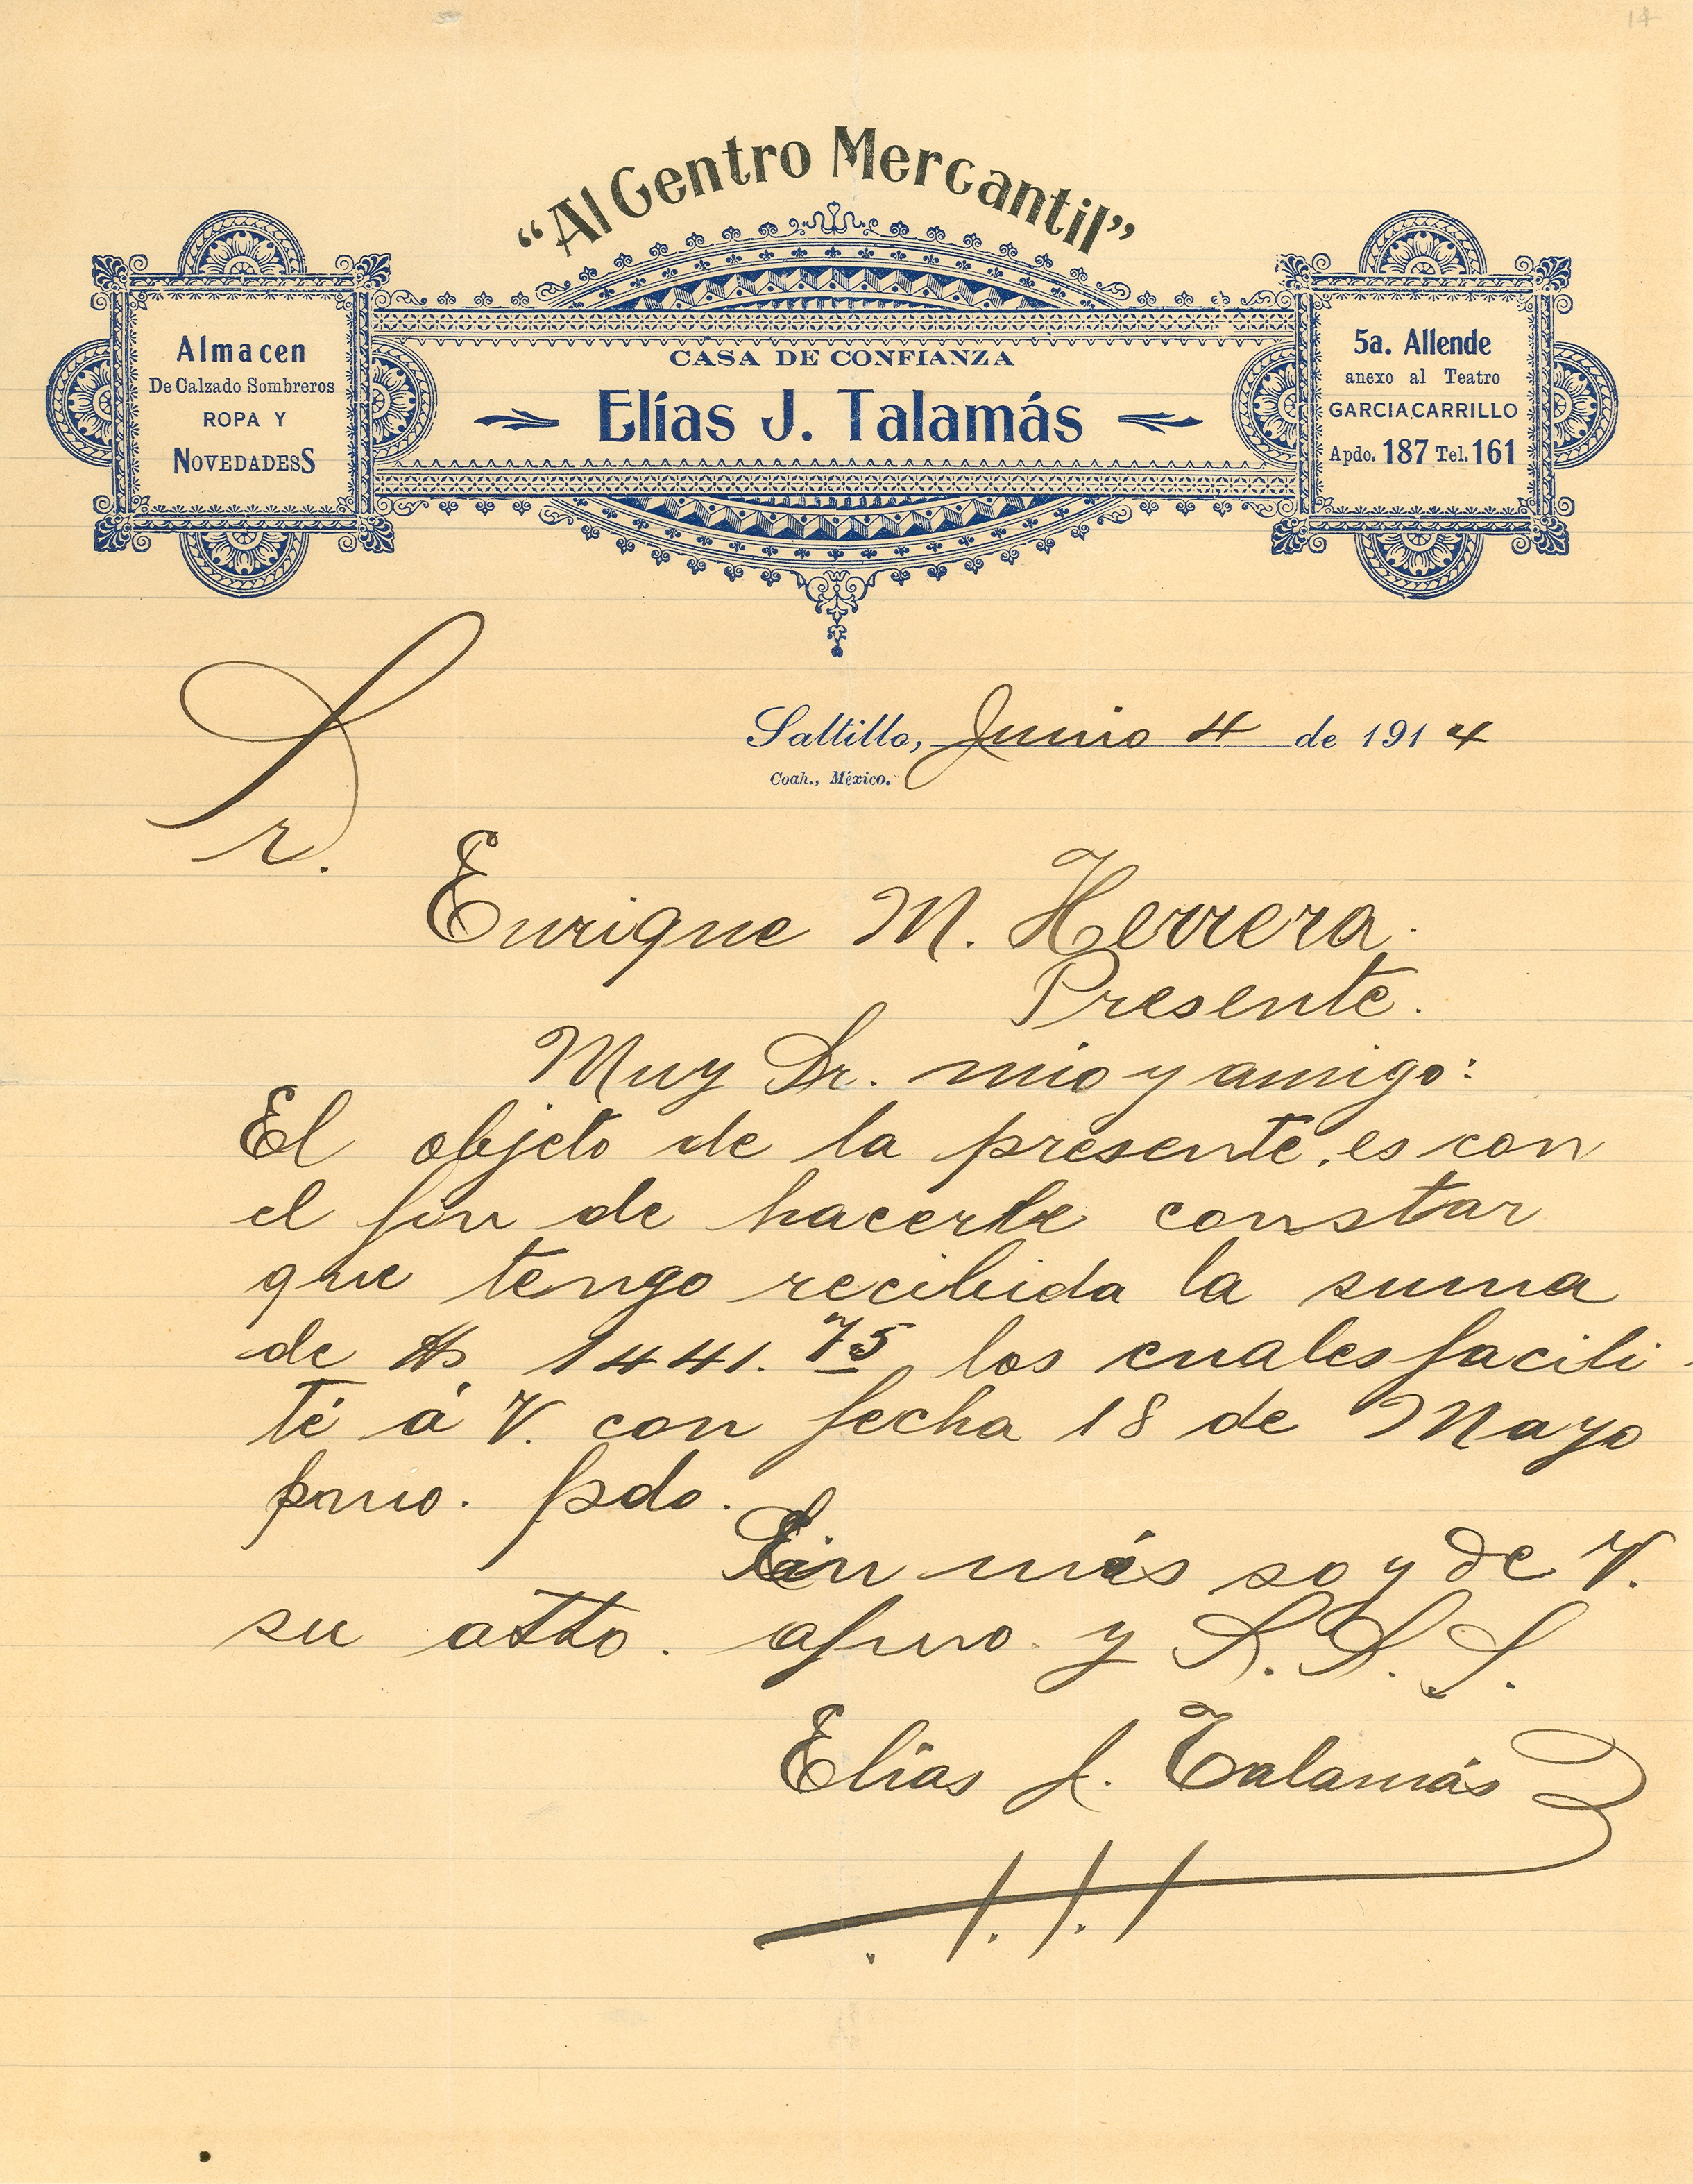 14
"Al Centro Mercantil"
Almacen
De Calzado Sombreros
ROPA Y
NOVEDADESS
CASA DE CONFIANZA
Elías J. Talamás
5a. Allende
anexo al Teatro
GARCIA CARRILLO
Apdo. 187 Tel. 161
Saltillo, Junio 4 de 1914
Coah., México.
Sr.
Enrique M. Herrera.
Presente.
Muy Sr. mio y amigo:
El objeto de la presente, es con
el fin de hacerle constar
que tengo recibida la suma
de $ 1441.75 los cuales facili-
té á V. con fecha 18 de Mayo
pmo. pdo.
Sin más soy de V.
su atto. afmo. y S. S. S.
Elías J. Talamás